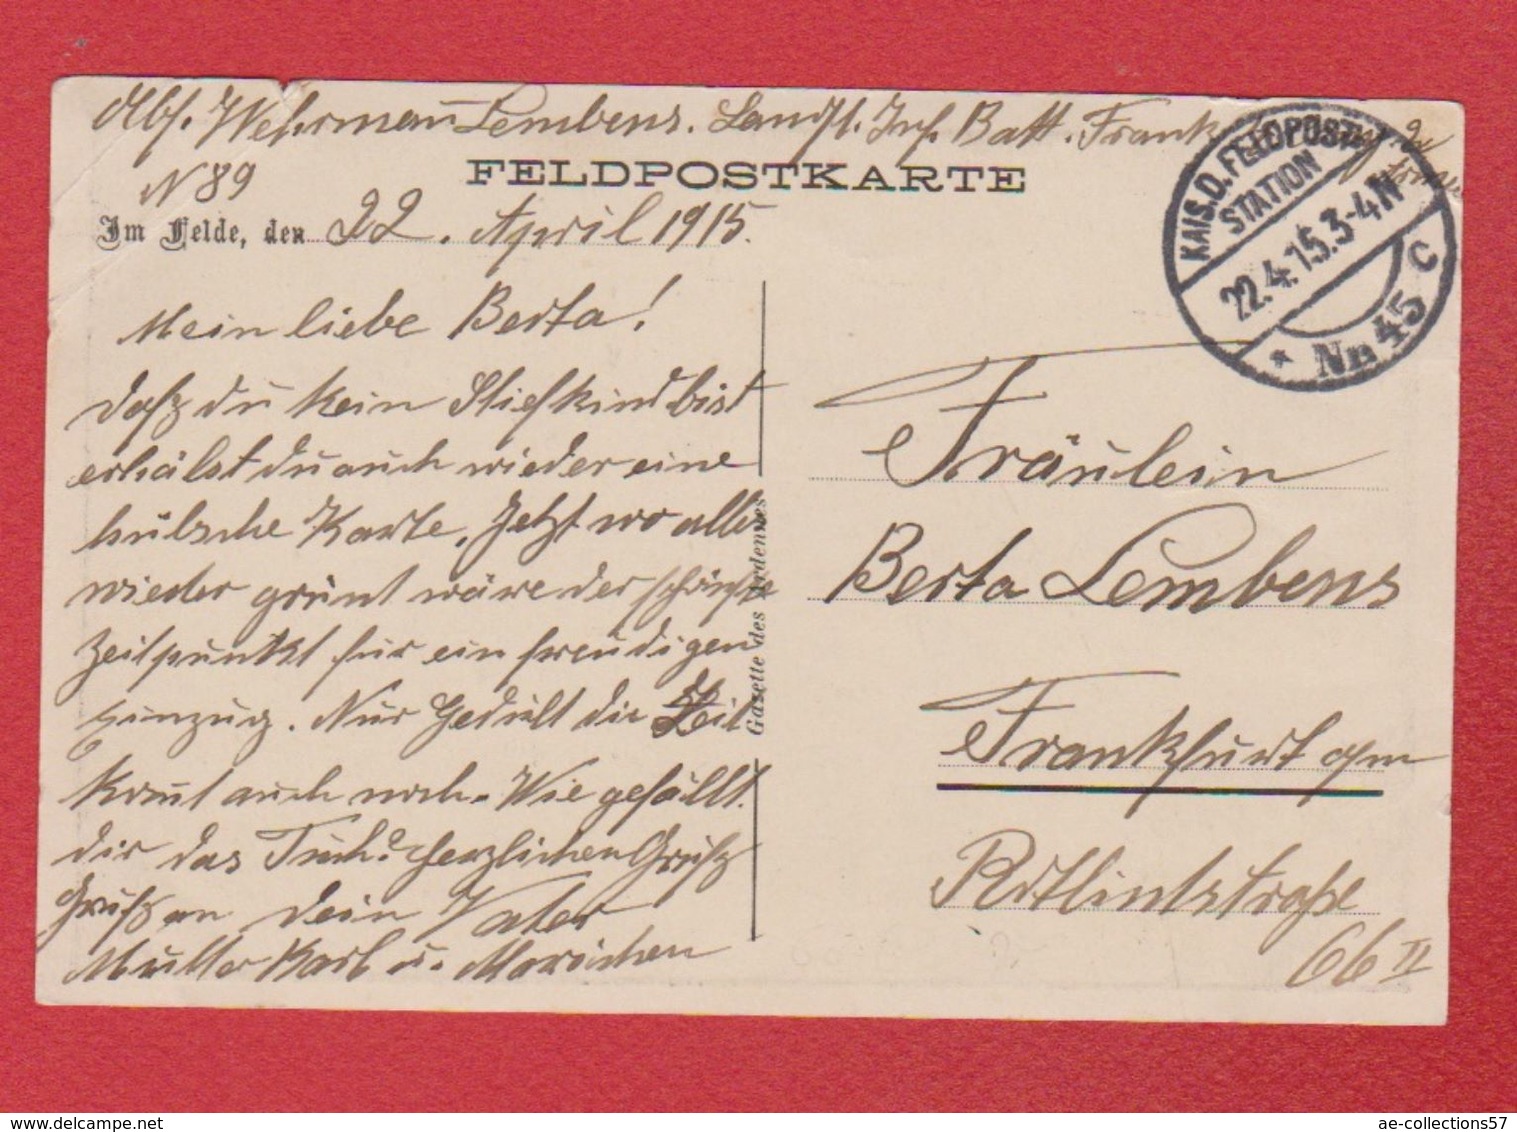 Abs. Wehrmann Lembens. Landst. Inf. Batt. Frank
N 89
FELDPOSTKARTE
Im Felde, den 22. April 1915.
KAIS. D. FELDPOST
STATION
22.4.15.3-4N
* Nr. 45 c
Mein liebe Berta!
Daß du kein Stiefkind bist
erhälst du auch wieder eine
hübsche Karte, Jetzt wo alles
wieder grünt wäre der schönste
Zeitpunkt für ein freudigen
Einzug. Nur Gedult die Zeit
komt auch noch. Wie gefällt
dir das Tuch? Herzlichen Gruß
Gruß an dein Vater
Mutter Karl u. Mariechen
Gazette des Ardennes
Fräulein
Berta Lembens
Frankfurt a/m
Rotlintstraße
66 II
www.delcampe.net
ae-collections57